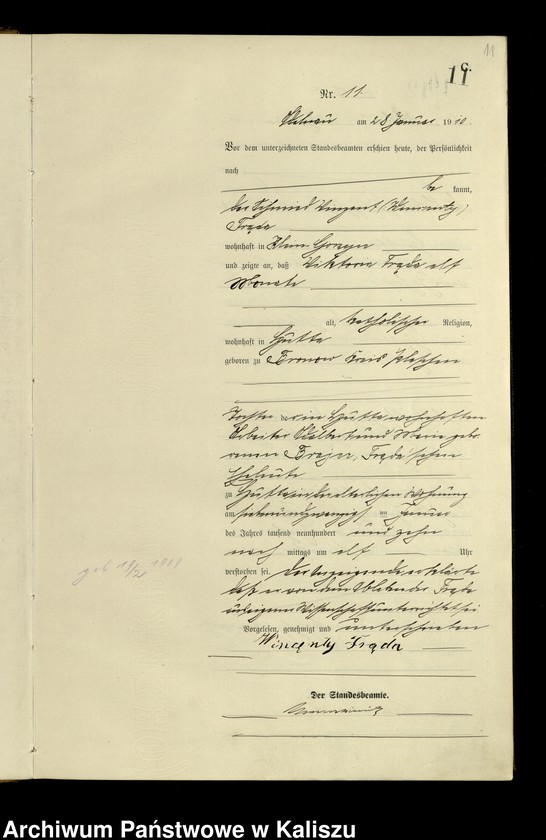 11
C.
11
Nr. 11.
am 28 Januar 1910.
Vor dem unterzeichneten Standesbeamten erschien heute, der Persönlichkeit
nach
be kannt,
der Schmied Vinzent (Wincenty)
Frąda
wohnhaft in Klein
und zeigte an, daß Viktoria Frąda elf
Monate
alt, katholischer Religion,
wohnhaft in Hutta
geboren zu Bronow Kreis Pleschen
Tochter der in Hutta wohnhaften
Arbeiter Adalbert und Marie gebo-
renen Frąda'schen
Eheleute
zu Hutta in der elterlichen Wohnung
am siebenundzwanzigsten Januar
des Jahres tausend neunhundert und zehn
nach mittags um elf Uhr
verstorben sei. Der Anzeigende erklärte
daß er von dem Ableben der Frąda
aus eigener Wissenschaft unterrichtet sei
Vorgelesen, genehmigt und unterschrieben
Wincenty Frąda
Der Standesbeamte.
Archiwum Państwowe w Kaliszu